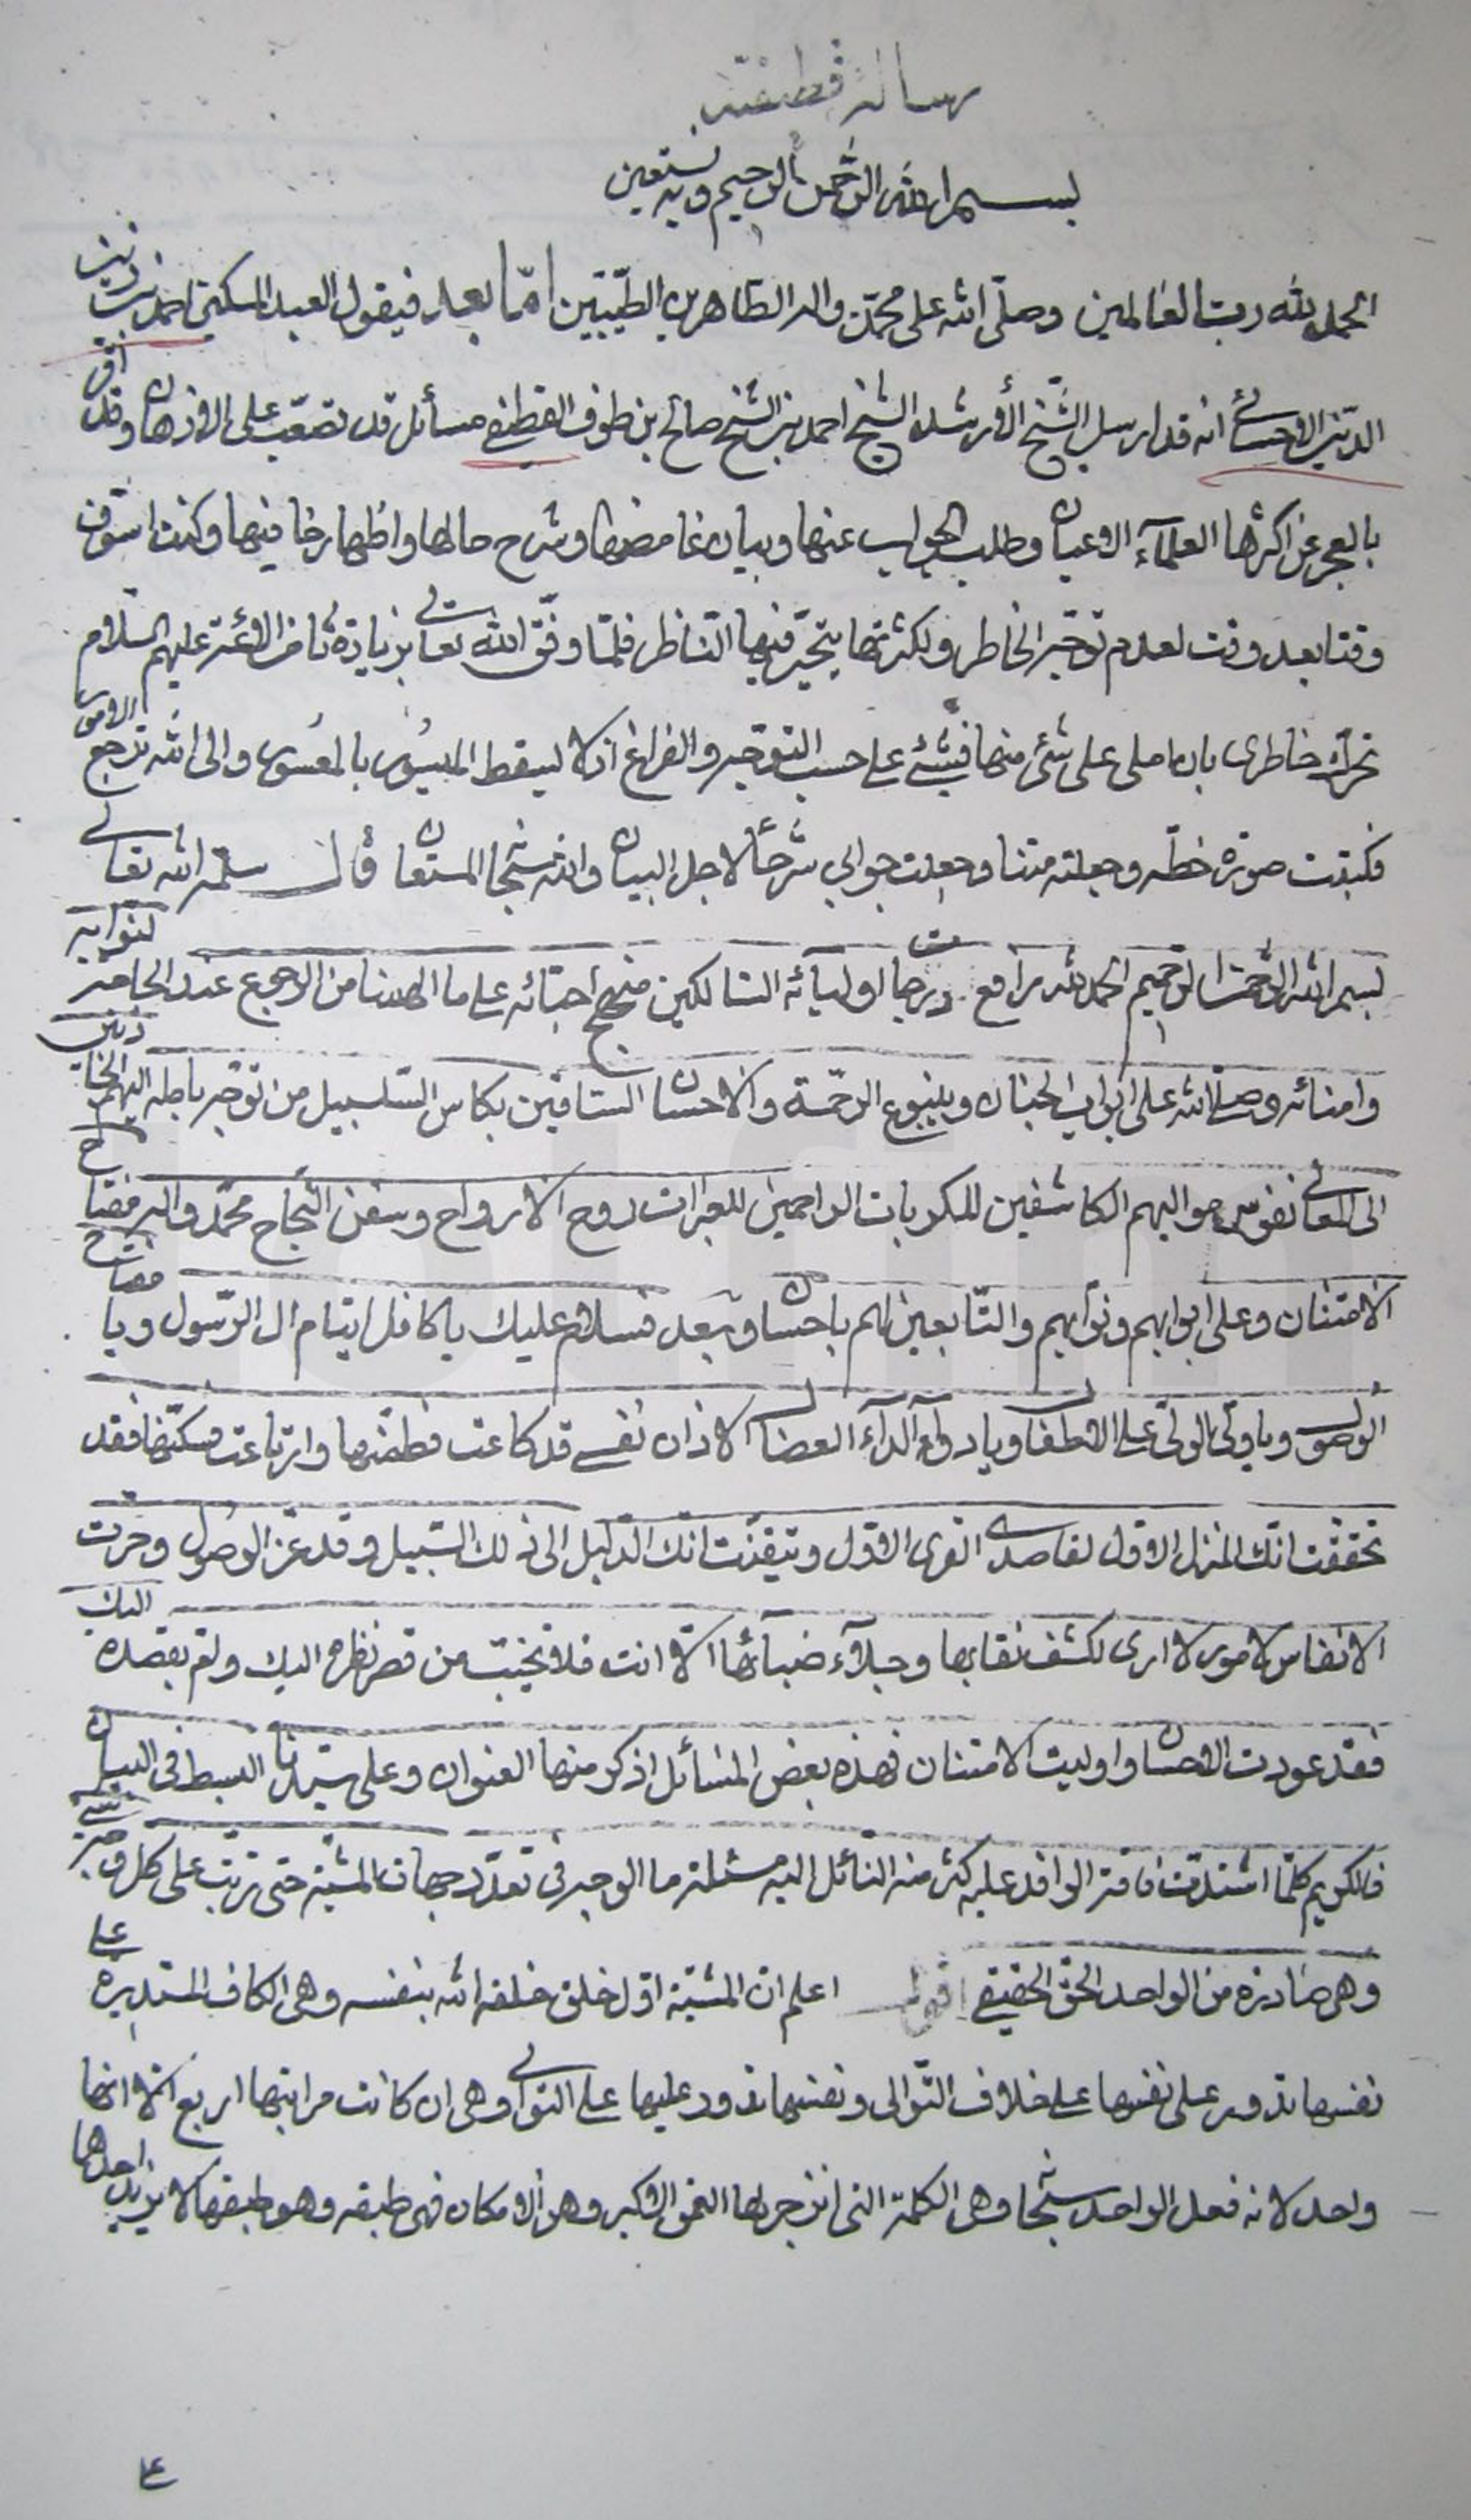 رسالة قطيفية
بسم الله الرحمن الرحيم وبه نستعين
الحمد لله رب العالمين وصلى الله على محمد واله الطاهرين الطيبين اما بعد فيقول العبد المسكين احمد بن زين
الدين الاحسائي انه قد ارسل الشيخ الارشد الشيخ احمد بن الشيخ صالح بن طوق القطيفي مسائل قد تصعب على الاذهان وقد اقر
بالعجز عن اكثرها العلماء الاعيان وطلب الجواب عنها وبيان غامضها وشرح حالها واظهار خافيها وكنت اسوف
وقتا بعد وقت لعدم توجه الخاطر ولكثرتها يتحير فيها الناظر فلما وفق الله تعالى بزيارة ثامن الائمة عليهم السلام
تحرك خاطري بان املي على شئ منها فشئ على حسب التوجه والفراغ اذ لا يسقط الميسور بالمعسور والى الله ترجع الامور
فكتبت صورة خطه وجعلته متنا وجعلت جوابي شرحا لاجل البيان والله سبحانه المستعان قال سلمه الله تعالى
بسم الله الرحمن الرحيم الحمد لله رافع درجات اوليائه السالكين منهج احبائه على ما الهمنا من الرجوع عند الحاجة لنوابه
وامنائه وصلى الله على ابواب الجنان وينبوع الرحمة والاحسان الساقين بكاس السلسبيل من توجه باطلة اليهم
الى المعاني نفوس مواليهم الكاشفين للكربات الراحمين للعبرات روح الارواح وسفن النجاح محمد واله مفتاح
الامتنان وعلى ابوابهم ونوابهم والتابعين لهم باحسان وبعد فسلام عليك يا كافل ايتام ال الرسول ويا مفتاح
الوصول ويا ولي الولي على الاطفال ويا دواء الداء العضال لاذان نفسي قد كاعت فطنتها وارتاعت مسكنتها فقد
تحققت انك المنزل الاول لقاصدي القرى الاول وتيقنت انك الدليل الى ذلك السبيل وقد عز الوصول وحرت
الانفاس لامور لا ارى لكشف نقابها وجلاء ضيائها الا انت فلا تخيب من قصر نظره اليك ولم يقصده اليك
فقد عودت الاحسان واوليت الامتنان فهذه بعض المسائل اذكر منها العنوان وعلى سيدنا البسط في البيان
فالكريم كلما اشتدت فاقة الوافد عليه كثر منه النائل اليه مسئلة ما الوجه في تعدد جهات المشية حتى ترتبت على كل وجه شئ
وهي صادرة من الواحد الحق الحقيقي اقول اعلم ان المشية اول خلق خلقه الله بنفسه وهي الكاف المستديرة على
نفسها تدور على نفسها على خلاف التوالي ونفسها تدور عليها على التوالي وهي ان كانت مراتبها اربع الا انها
واحد لانه فعل الواحد سبحانه وهي الكلمة التي انزجر لها العمق الاكبر وهو الامكان فهي طبقه وهو طبقها لا يزيد احدهما
على